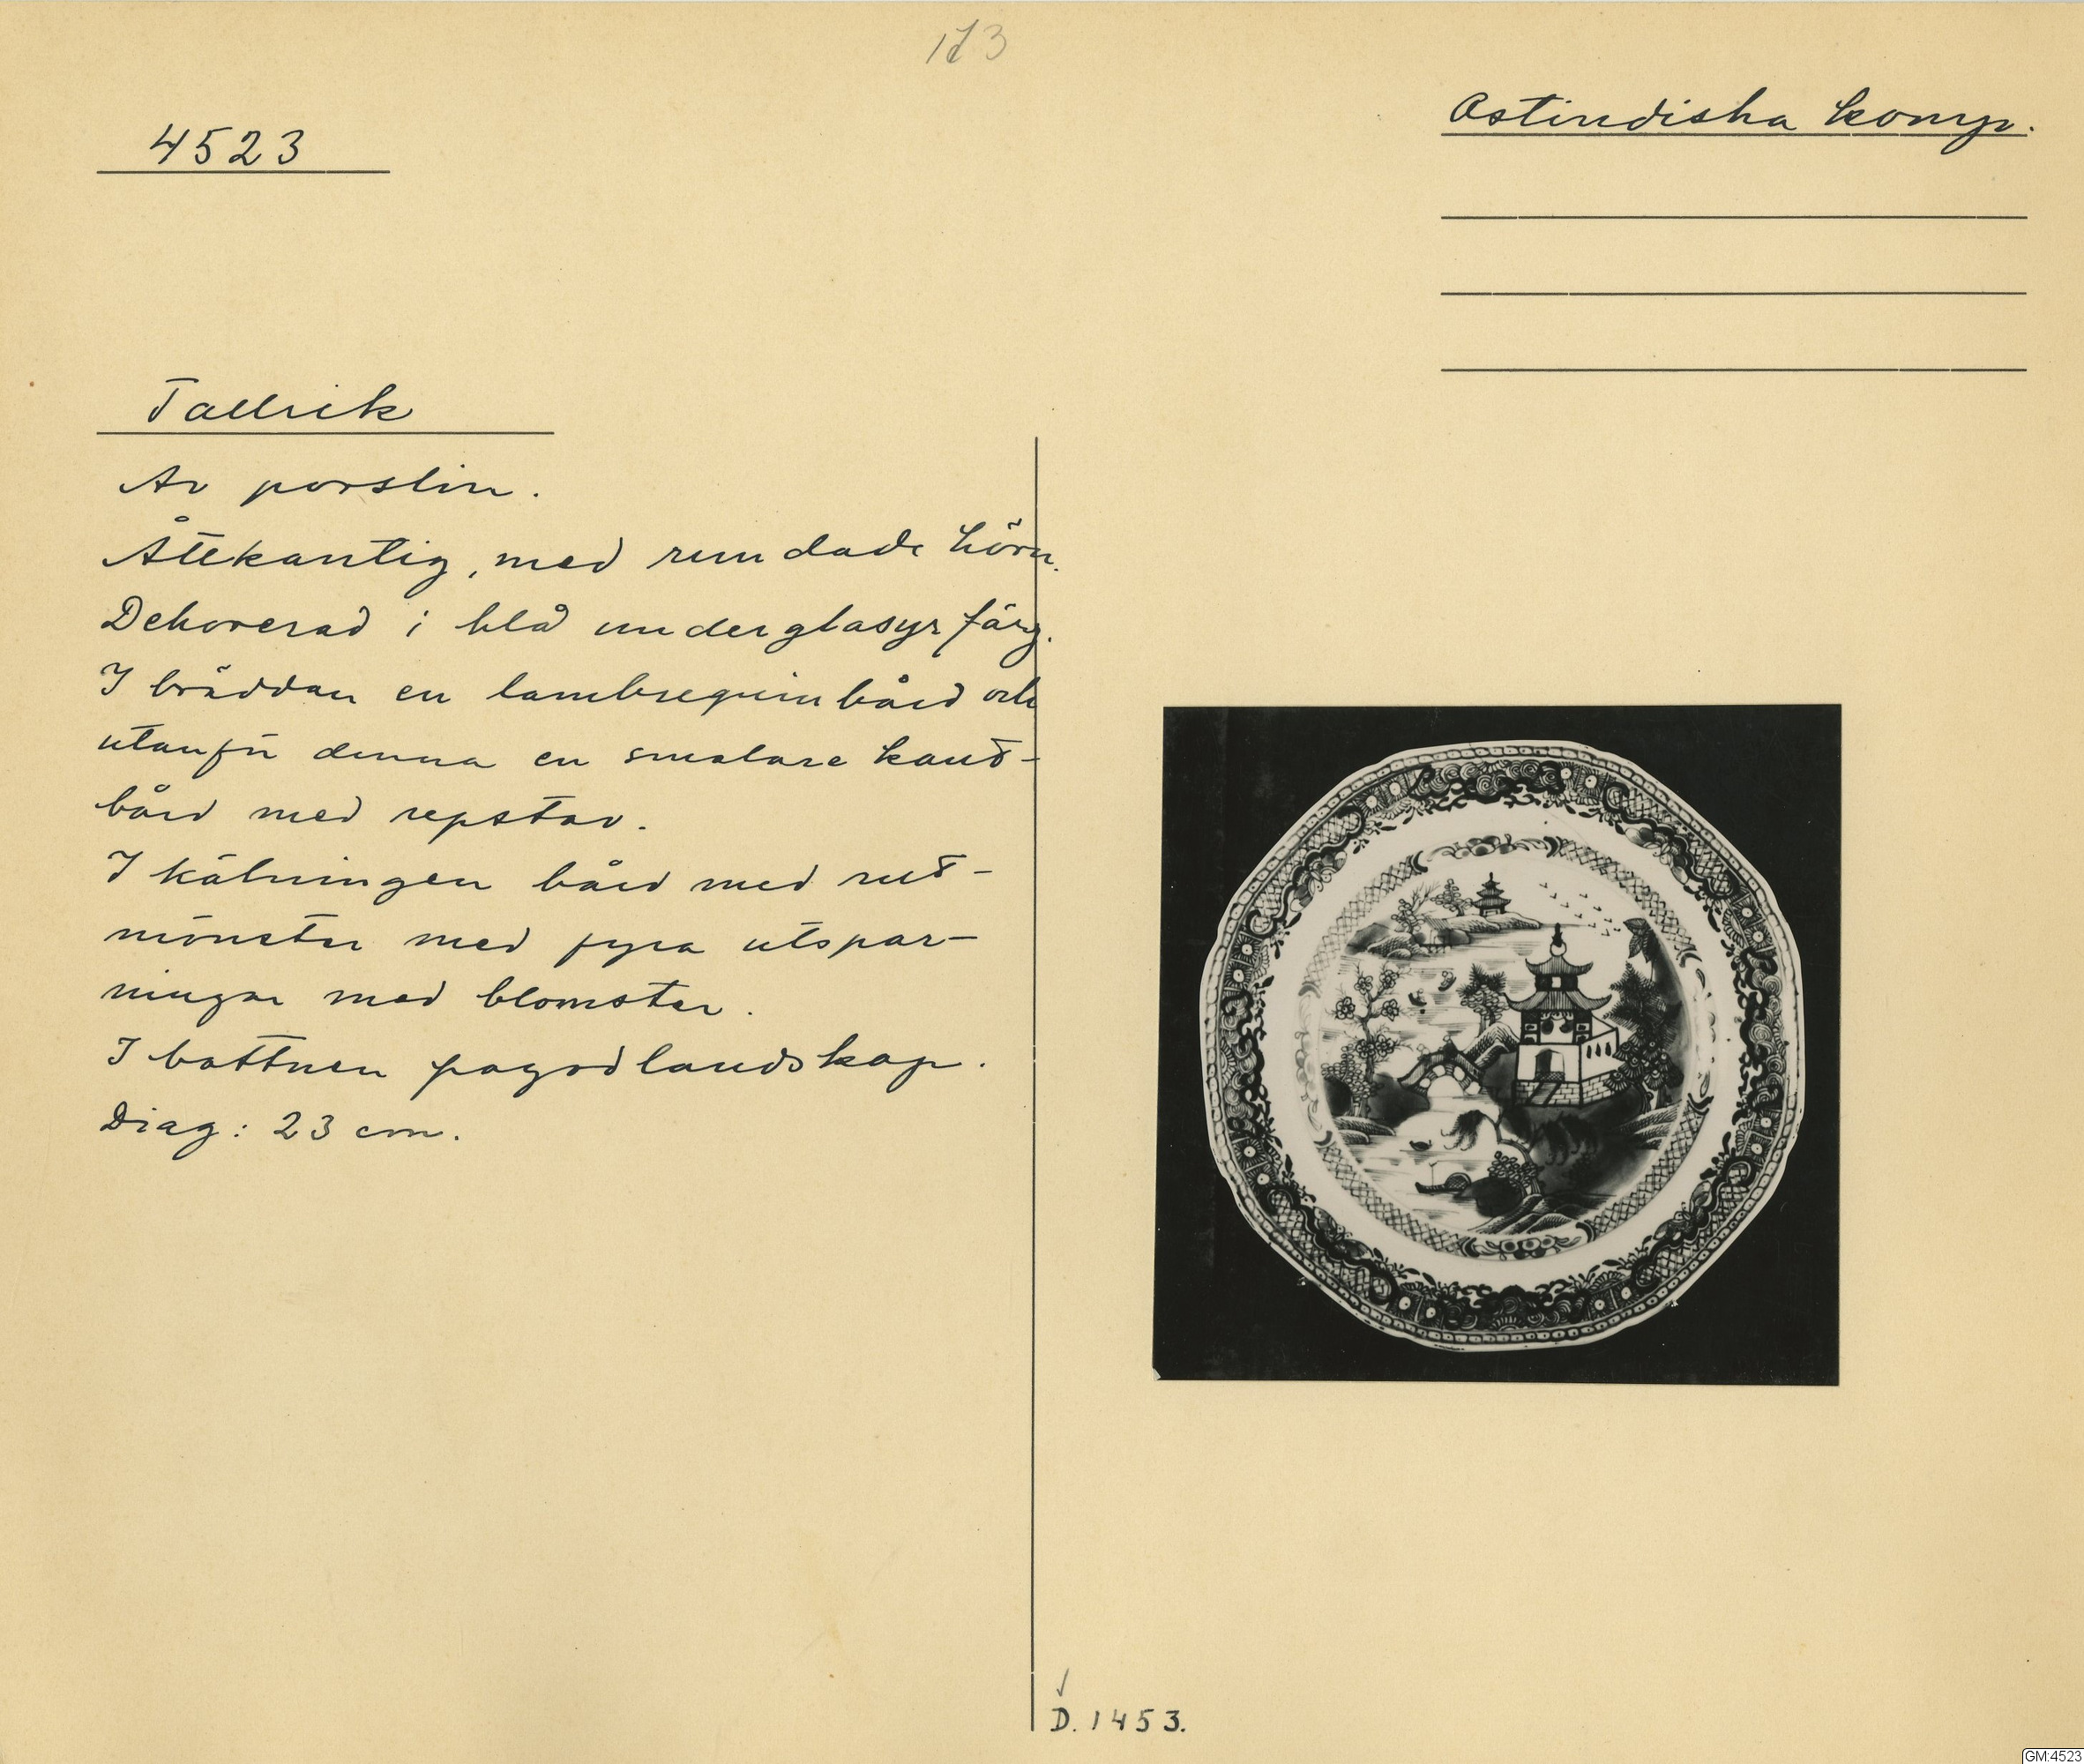 173
4523
Ostindiska komp.
Tallrik
Av porslin.
Åttkantig, med rundade hörn.
Dekorerad i blå underglasyrfärg.
I brädden en lambrequinbård och
utanför denna en smalare kant-
bård med repstav.
I kälningen bård med rut-
mönster med fyra utspar-
ningar med blomster.
I bottnen pagodlandskap.
Diag: 23 cm.
D. 1453.
GM:4523